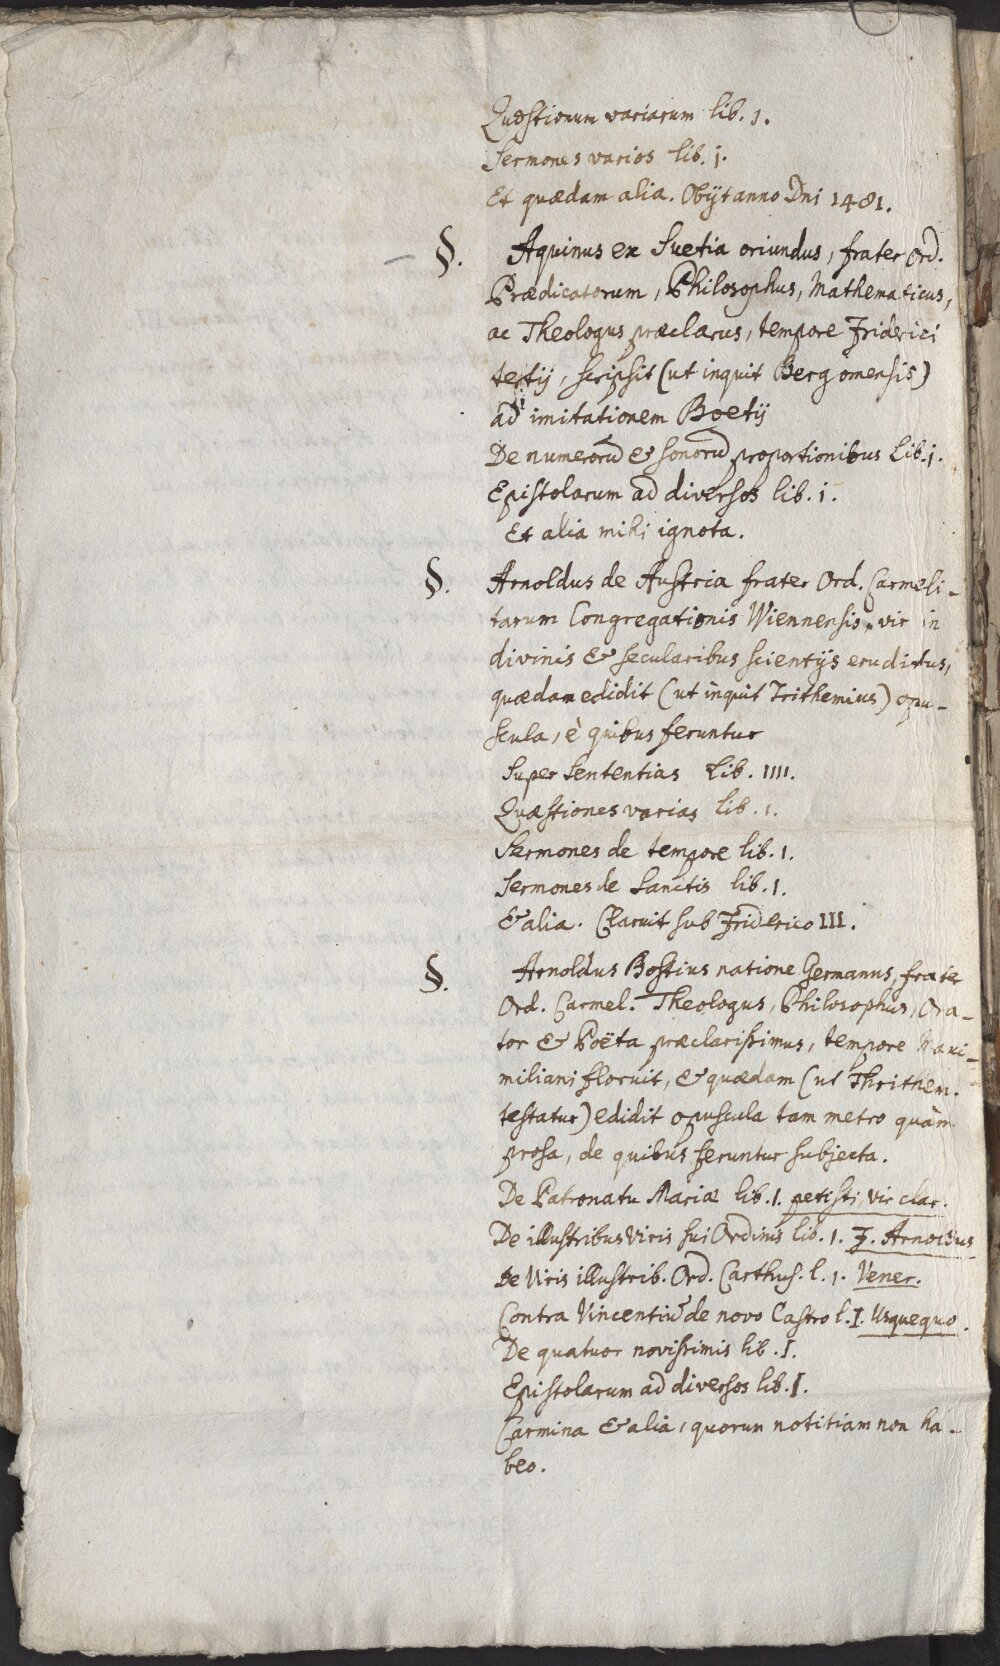 Quæstionum variarum lib. 1.
Sermones varios lib. j.
Et quædam alia. Obijt anno Dni 1481.
§. Aquinus ex Suetia oriundus, frater Ord.
Prædicatorum, Philosophus, Mathematicus,
ac Theologus præclarus, tempore Friderici
tertij, scripsit (ut inquit Bergomensis)
ad imitationem Boetij
De numerorũ & sonorũ proportionibus Lib. j.
Epistolarum ad diversos lib. i.
Et alia mihi ignota.
§. Arnoldus de Austria frater Ord. Carmeli-
tarum Congregationis Wiennensis, vir in
divinis & secularibus scientijs eruditus,
quædam edidit (ut inquit Trithemius) opu-
scula, è quibus feruntur
Super Sententias Lib. IIII.
Quæstiones varias lib. 1.
Sermones de tempore lib. 1.
Sermones de Sanctis lib. 1.
& alia. Claruit sub Friderico III.
§. Arnoldus Bostius natione Germanus, frater
Ord. Carmel. Theologus, Philosophus, Ora-
tor & Poëta præclarissimus, tempore Maxi-
miliani floruit, & quædam (ut Thrithem.
testatur) edidit opuscula tam metro quàm
prosa, de quibus feruntur subjecta.
De Patronatu Mariæ lib. 1. petisti vir clar.
De illustribus Viris sui Ordinis lib. 1. F. Arnoldus
De Viris illustrib. Ord. Carthus. l. 1. Vener.
Contra Vincentiũ de novo Castro l. I. Usquequo.
De quatuor novissimis lib. I.
Epistolarum ad diversos lib. I.
Carmina & alia, quorum notitiam non ha-
beo.